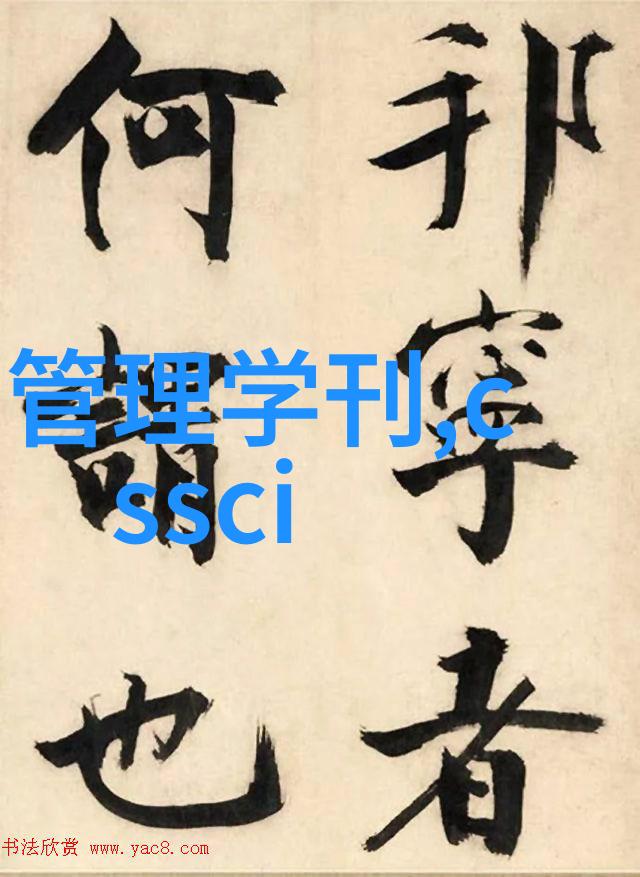 邦寧者
何謂也
管理学刊,c
ssci
书法欣赏 www.yac8.com